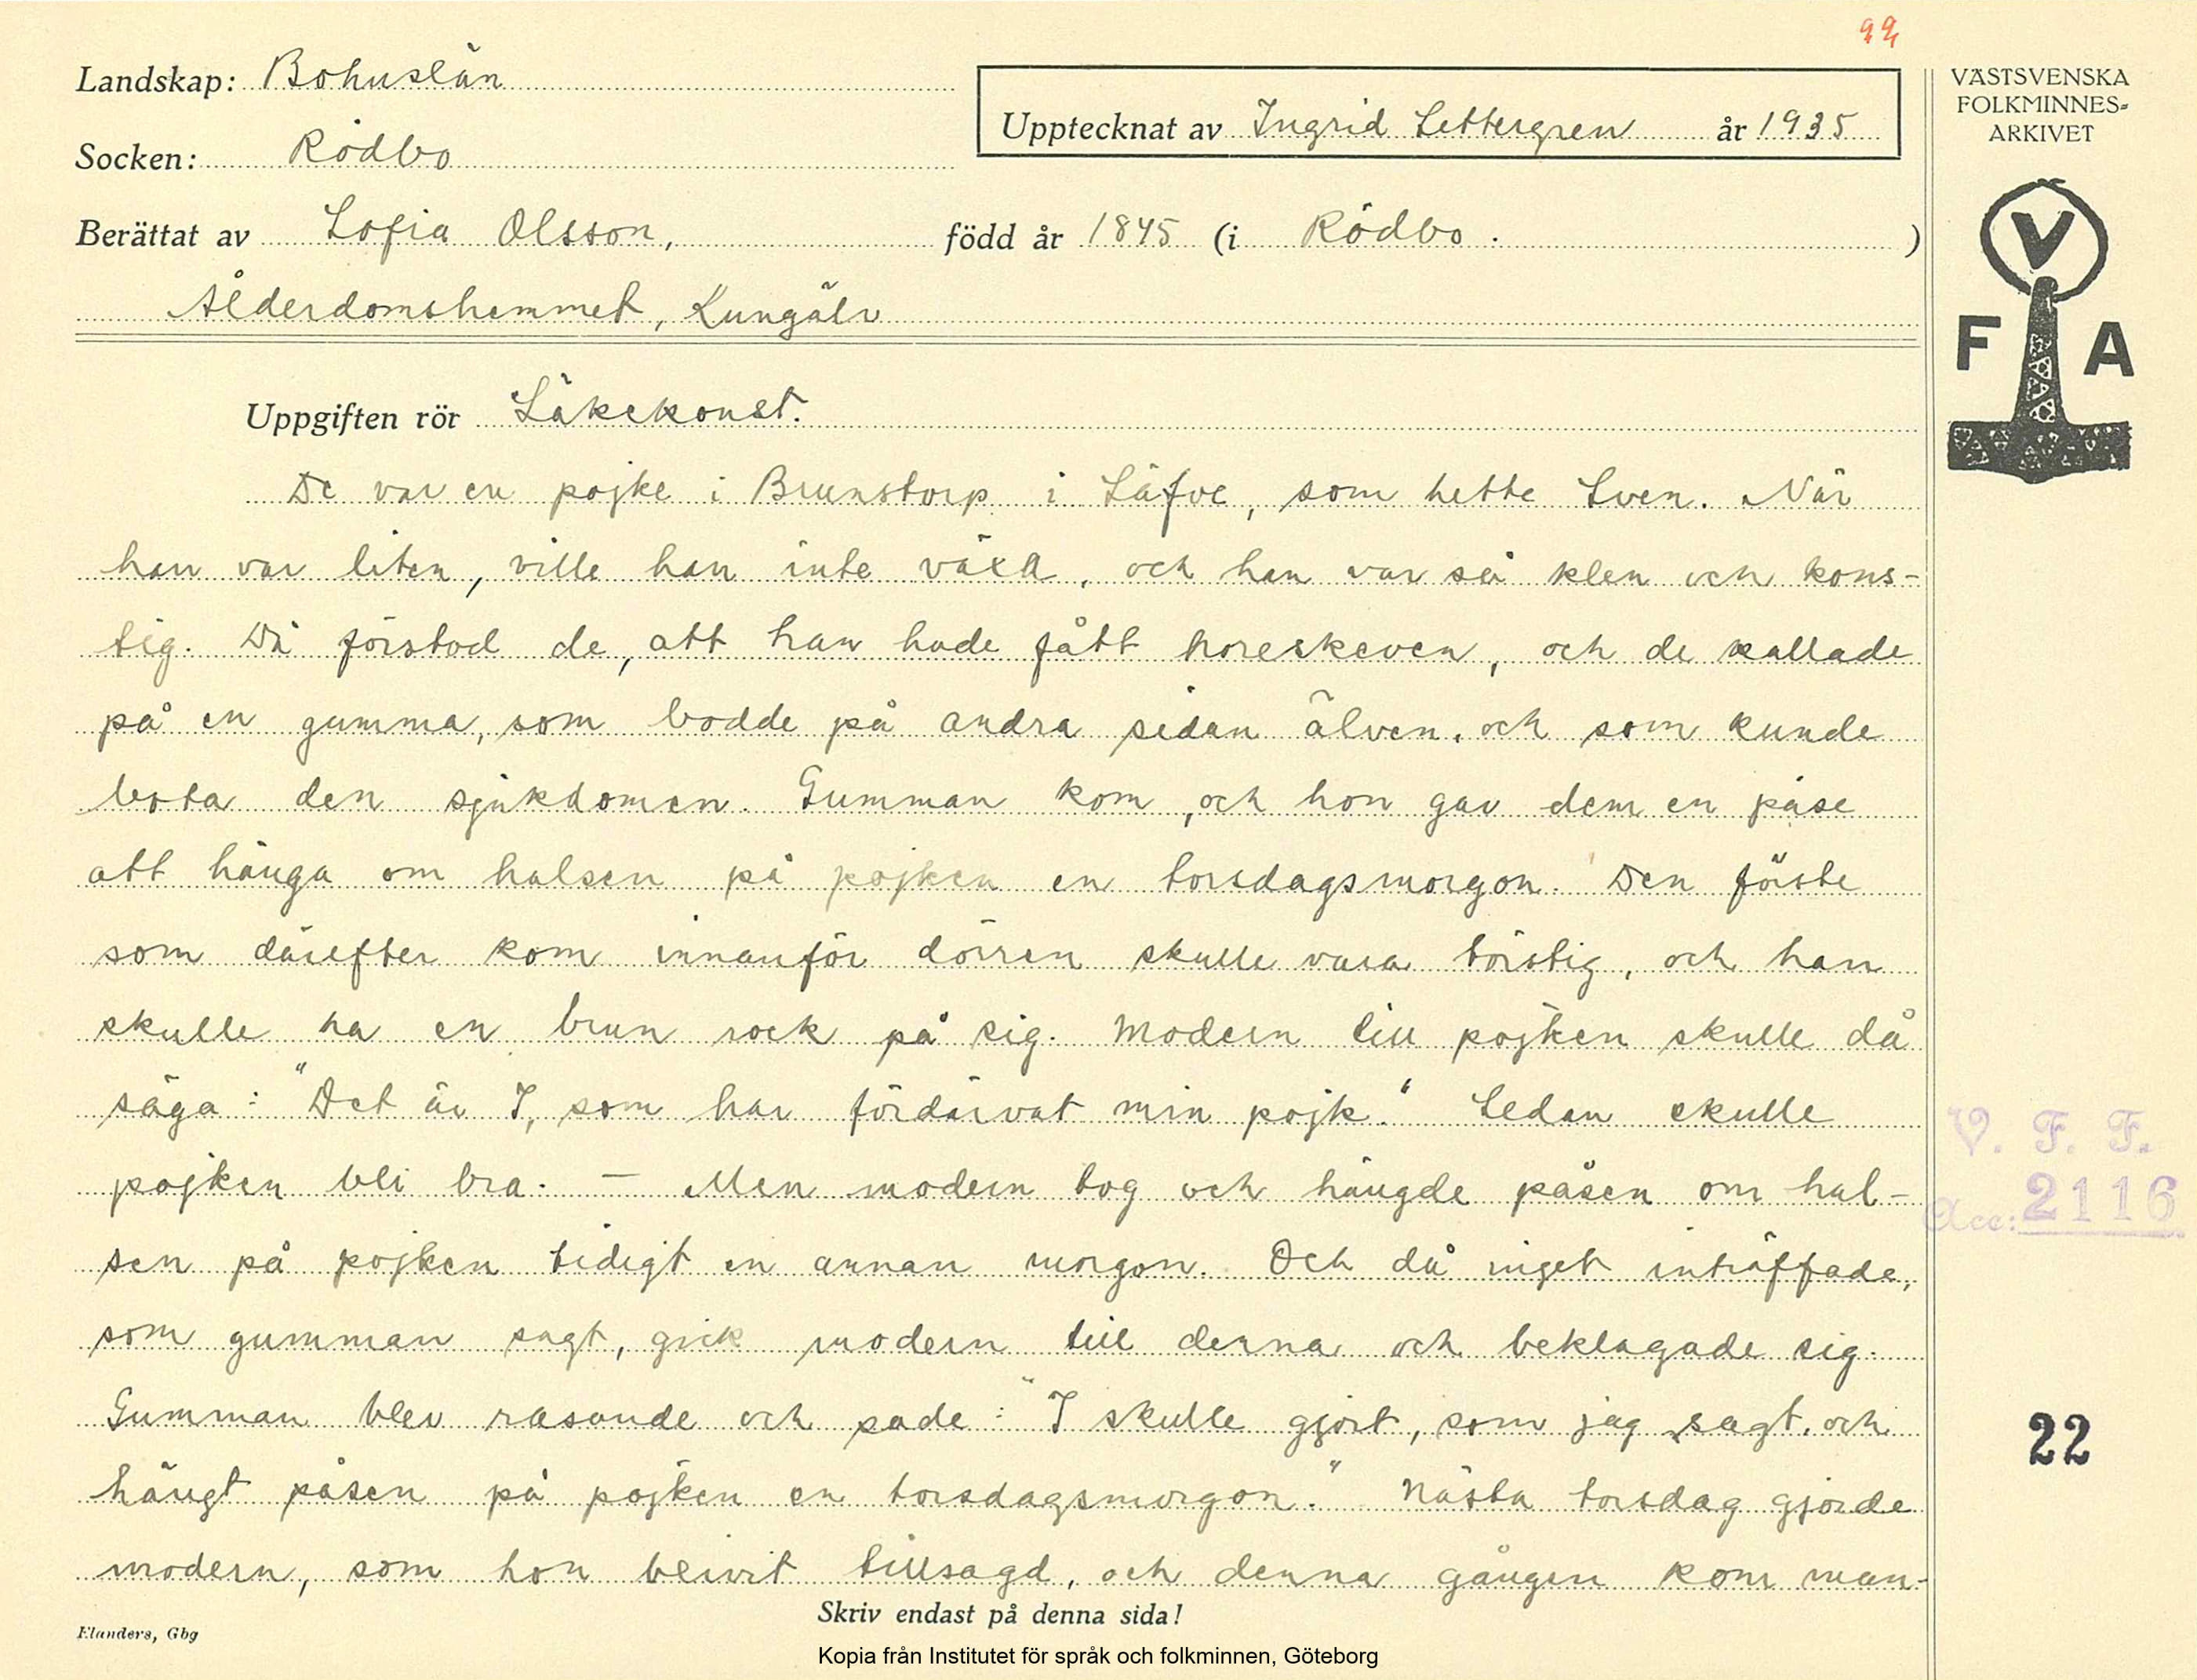 99
Landskap: Bohuslän
Upptecknat av Ingrid Settergren år 1935
VÄSTSVENSKA
FOLKMINNES-
ARKIVET
Socken: Rödbo
Berättat av Sofia Olsson, född år 1845 (i Rödbo. )
Ålderdomshemmet, Kungälv
V
F A
Uppgiften rör Läkekonst.
De var en pojke i Brunstorp i Säfve, som hette Sven. När
han var liten, ville han inte växa, och han var så klen och kons-
tig. Då förstod de, att han hade fått horeskeven, och de kallade
på en gumma, som bodde på andra sidan älven, och som kunde
bota den sjukdomen. Gumman kom, och hon gav dem en påse
att hänga om halsen på pojken en torsdagsmorgon. Den förste
som därefter kom innanför dörren skulle vara törstig, och han
skulle ha en brun rock på sig. Modern till pojken skulle då
säga: "Det är I, som har fördärvat min pojk." Sedan skulle
pojken bli bra. — Men modern tog och hängde påsen om hal-
sen på pojken tidigt en annan morgon. Och då inget inträffade,
som gumman sagt, gick modern till denna och beklagade sig.
Gumman blev rasande och sade: "I skulle gjort, som jag sagt, och
hängt påsen på pojken en torsdagsmorgon." Nästa torsdag gjorde
modern, som hon blivit tillsagd, och denna gången kom man-
V. F. F.
Acc: 2116
22
Skriv endast på denna sida!
Elanders, Gbg
Kopia från Institutet för språk och folkminnen, Göteborg